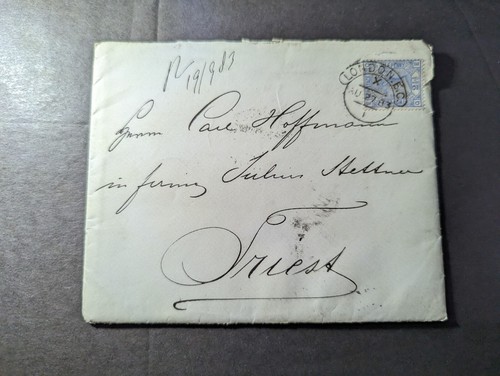 R 19/9 83
LONDON.E.C.
X
AU 27 83
1
Herrn Carl Hoffmann
in firma Julius Stettner
Triest